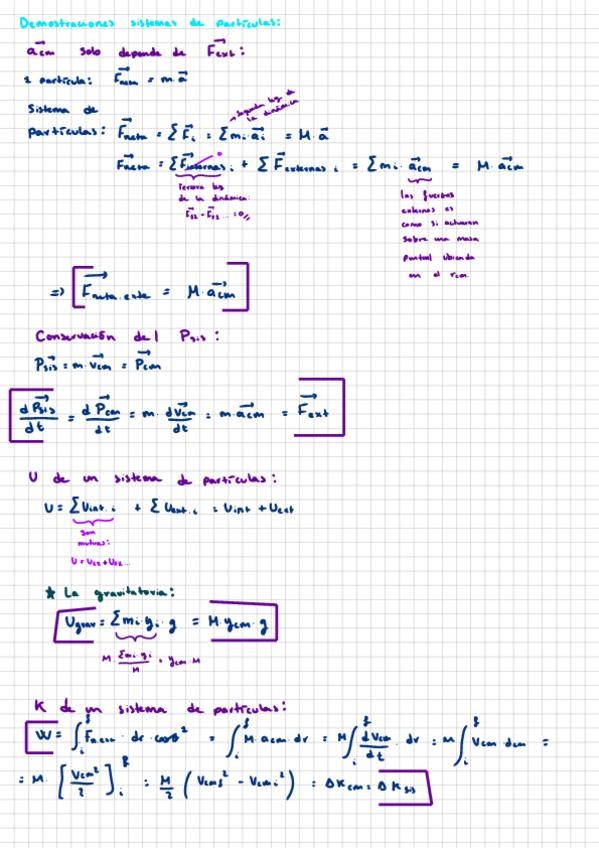 Demostraciones sistemas de partículas:
a⃗cm solo depende de F⃗ext:
1 partícula: F⃗neta = m·a⃗
segunda ley de la dinámica
Sistema de
partículas: F⃗neta = ΣF⃗i = Σmi·a⃗i = M·a⃗
F⃗neta = ΣF⃗internas i + ΣF⃗externas i = Σmi·a⃗cm = M·a⃗cm
0
Tercera ley
de la dinámica:
F⃗12 - F⃗12 ... = 0//
las fuerzas
externas es
como si actuaran
sobre una masa
puntual ubicada
en el rcm
=> F⃗neta.exte = M·a⃗cm
Conservación del Psis:
P⃗sis = m·v⃗cm = P⃗cm
dP⃗sis/dt = dP⃗cm/dt = m·dv⃗cm/dt = m·a⃗cm = F⃗ext
U de un sistema de partículas:
U = ΣUint.i + ΣUext.i = Uint + Uext
Son
mutuas:
★ La gravitatoria:
Ugrav = Σmi·yi·g = M·ycm·g
M·Σmi·yi/M = ycm·M
K de un sistema de partículas:
W = ∫ᵢᶠ Fneta·dr·cos0° = ∫ᵢᶠ M·acm·dr = M∫ᵢᶠ dVcm/dt·dr = M∫ᵢᶠ Vcm·dcm =
= M·[Vcm²/2]ᵢᶠ = M/2 (Vcmf² - Vcmi²) = ΔKcm = ΔKsis